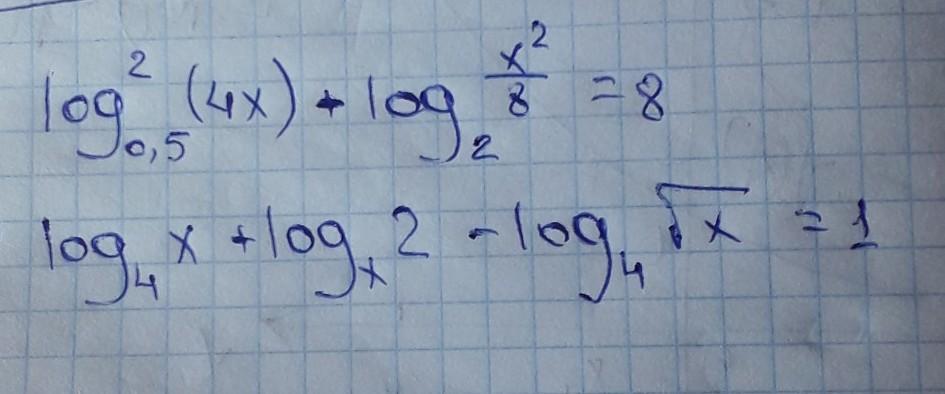 log²₀,₅ (4x) + log₂ x²/8 = 8
log₄ x + logₓ 2 - log₄ √x = 1